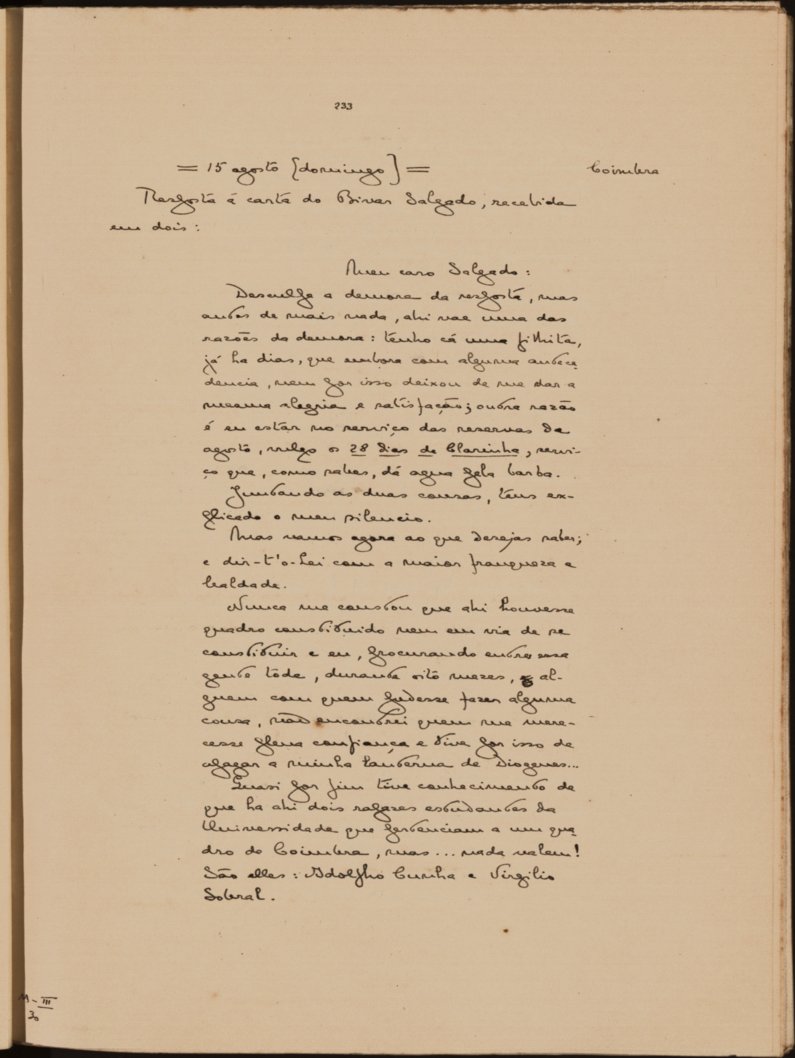 233
= 15 agosto [domingo] = Coimbra
Resposta á carta do Bivar Salgado, recebida
em dois:
Meu caro Salgado:
Desculpe a demora da resposta, mas
antes de mais nada, ahi vae uma das
razões da demora: tenho cá uma filhita,
já ha dias, que embora com alguma antece
dencia, nem por isso deixou de me dar a
mesma alegria e satisfação; outra razão
é eu estar no serviço das reservas de
agosto, vulgo os 28 dias de Clarinha, servi-
ço que, como sabes, dá agua pela barba.
Juntando as duas cousas, tens ex-
plicado o meu silencio.
Mas vamos agora ao que desejas saber;
e dir-t'o-hei com a maior franqueza e
lealdade.
Nunca me constou que ahi houvesse
quadro constituido nem em via de se
constituir e eu, procurando entre essa
gente tôda, durante oito mezes, al-
guem com quem pudesse fazer alguma
cousa, não encontrei quem me mere-
cesse plena confiança e tive por isso de
apagar a minha lanterna de Diogenes...
Quasi por fim tive conhecimento de
que ha ahi dois rapazes estudantes da
Universidade que pertenciam a um qua
dro de Coimbra, mas... nada valem!
São elles: Adolpho Cunha e Virgilio
Sobral.
M-III
30